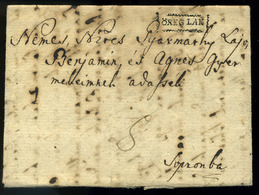 ÖREGLAK
Nemes, Nzős Gyarmathy Lajos,
Benjamin, és Agnes Gyer
mekeimnek adassék
Sopronba